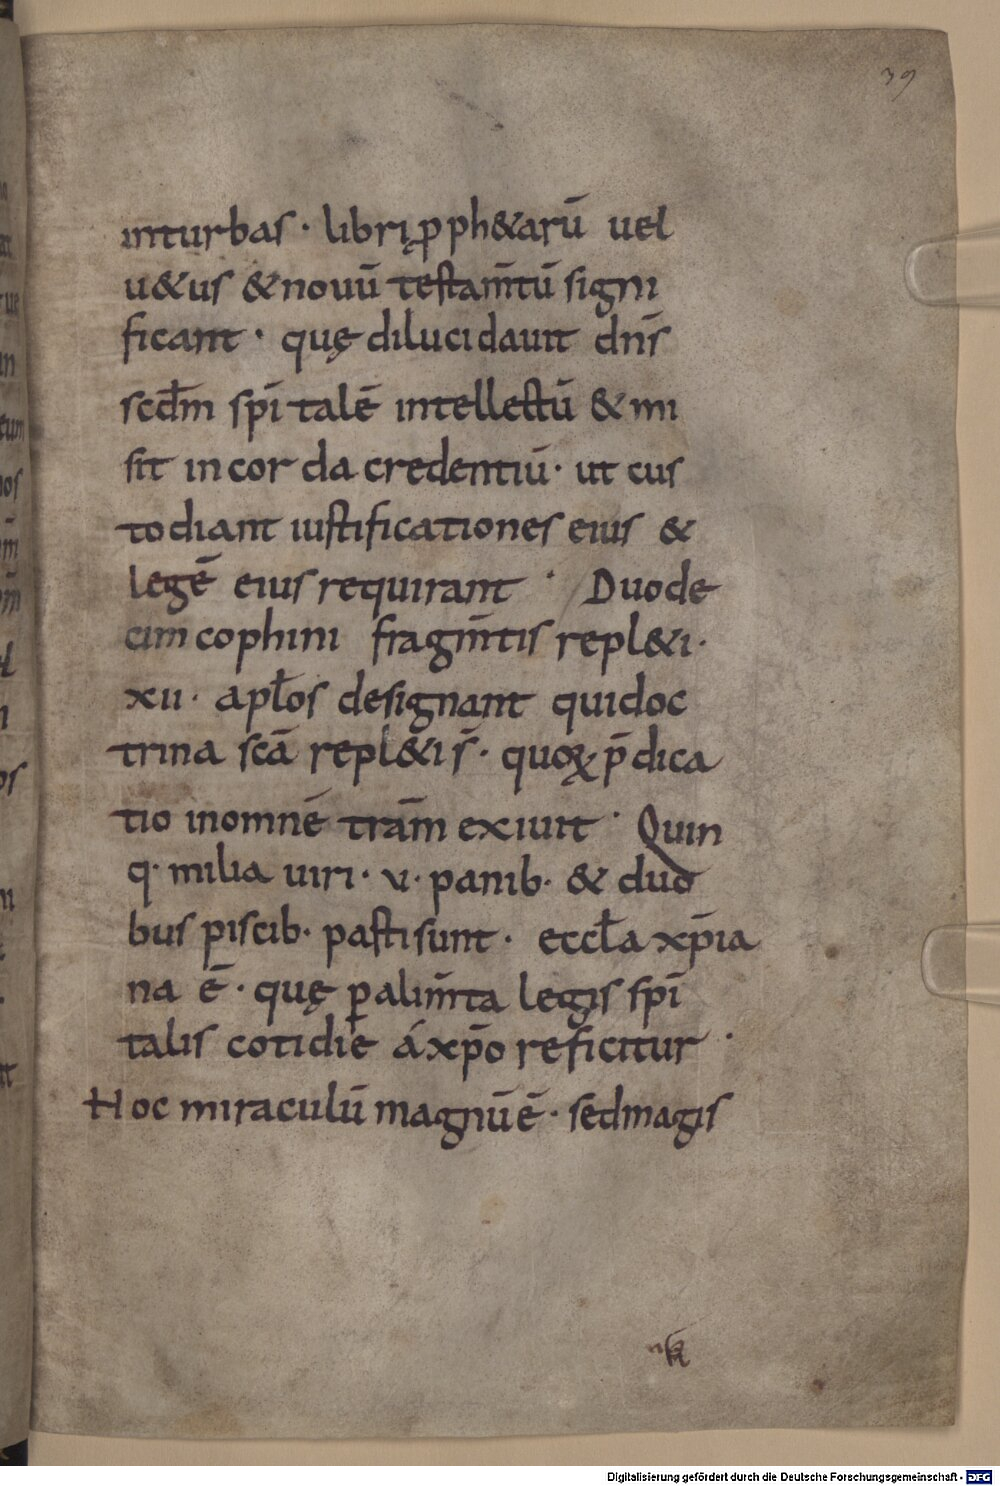 39
inturbas · librı ꝓph&arū uel
u&us &nouū testam̄tū signi
ficant · quę dilucidauit dn̄s
scdm̄ spī talē intellectū & mi
sit incor da credentiū · ut cus
todiant iustificationes eius &
legē eius requirant · Duode
cim cophini fragm̄tis repl&i ·
xii · apłos designant quidoc
trina scā repl&i s̄ · quoꝝ p̄dica
tio inomnē trām exiuit · Quin
q · milia uiri · v · panib · & duo
bus piscib · pasti sunt · eccła xp̄ia
na ē · quę ꝑalim̄ta legis spī
talis cotidie á xp̄o reficitur ·
Hoc miraculū magnū ē · sed magis
Digitalisierung gefördert durch die Deutsche Forschungsgemeinschaft - DFG